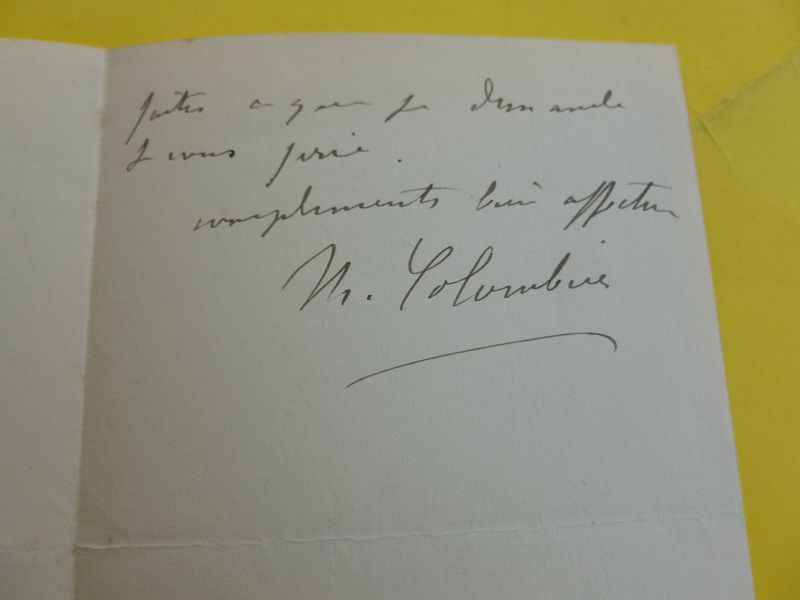 faites ce que je demande
je vous prie.
compliments bien affectueux
M. Colombier